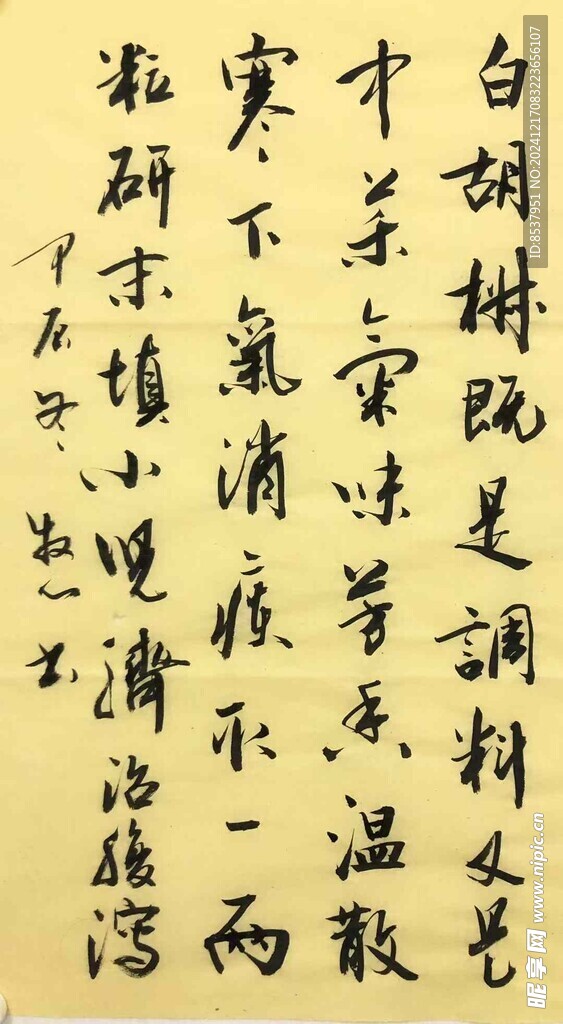 白胡椒既是調料又是
中药氣味芳香温散
寒下氣消痰取一兩
粒研末填小児臍治腹瀉
甲辰冬 牧心书
ID:8537951 NO:20241217083223656107
昵享网 www.nipic.cn